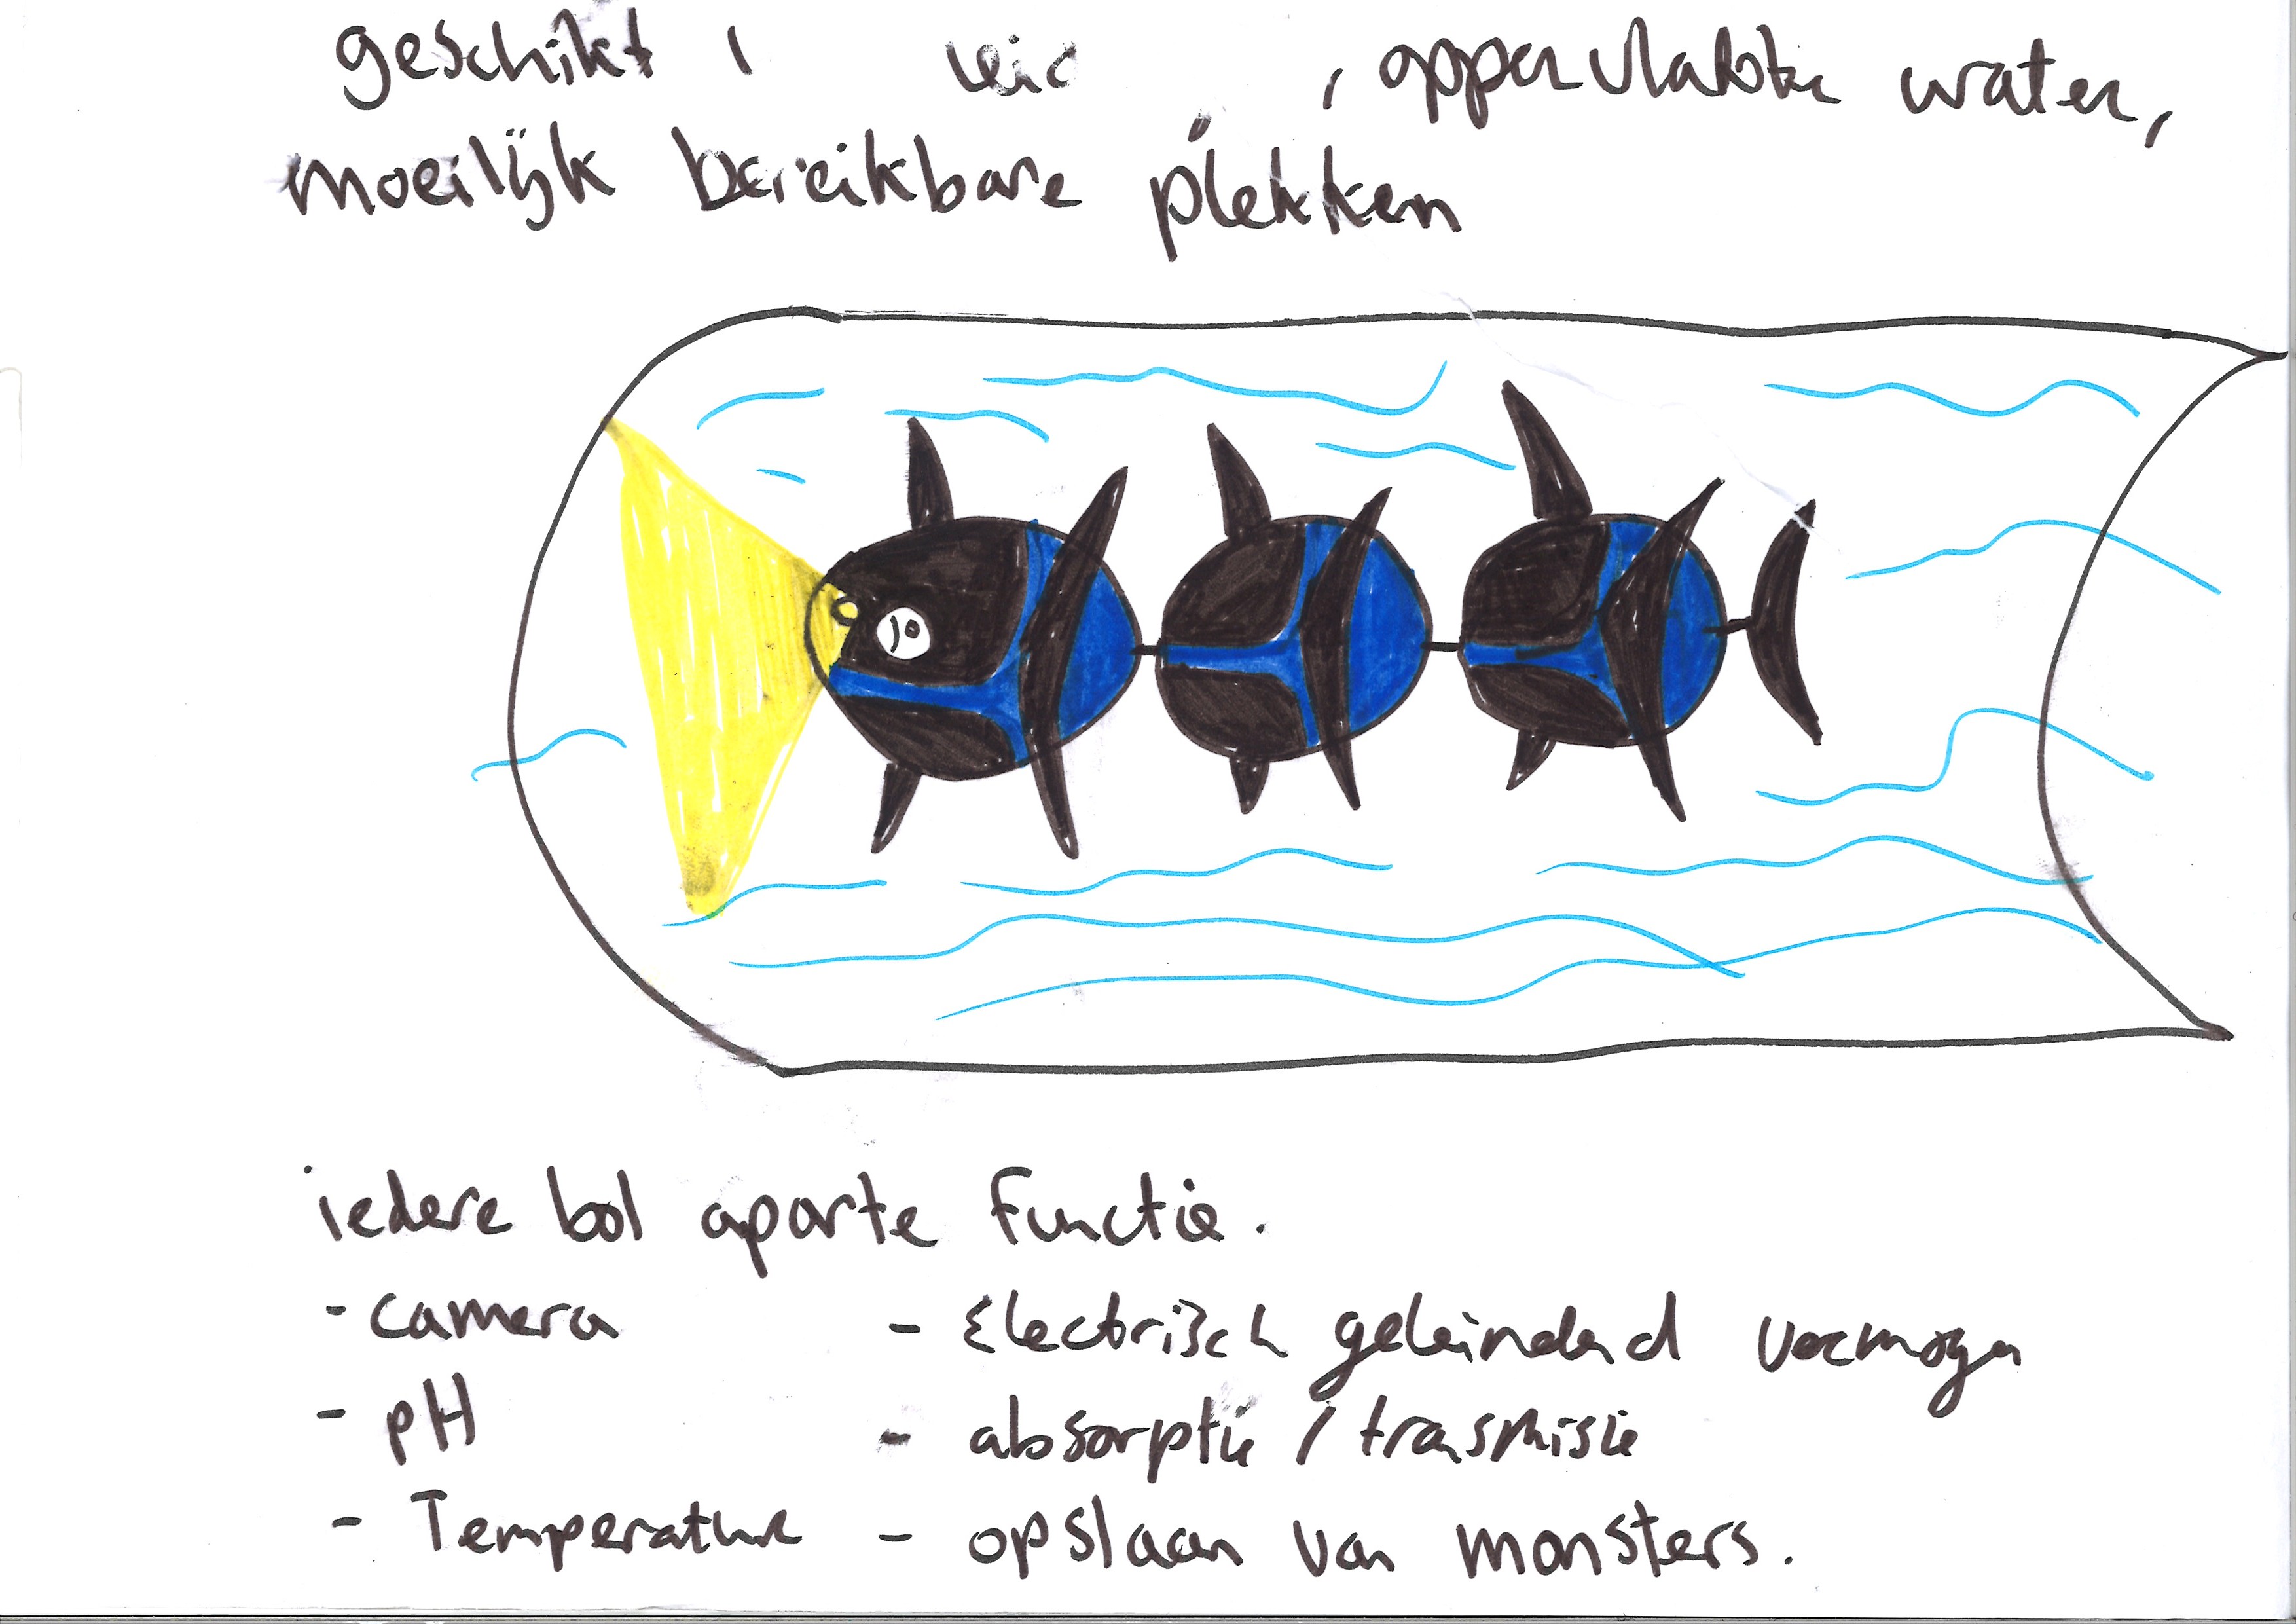 geschikt , oppervlakte water,
moeilijk bereikbare plekken
iedere bol aparte functie.
- camera
- pH
- Temperatuur
- Electrisch geleindend vermogen
- absorptie / trasmisie
- opslaan van monsters.